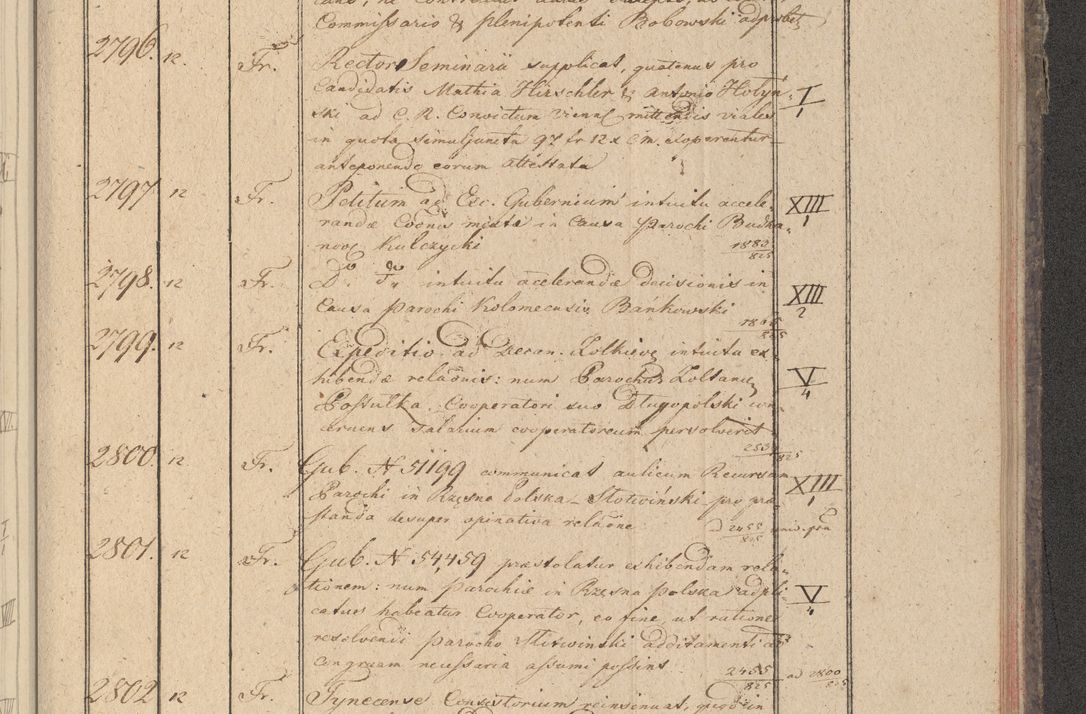 Commissario & plenipotenti Bobowski adprobet
2796. 12. Fr. Rector Seminarii supplicat, quatenus pro
Candidatis Mathia Hirschler & Antonio Hołyń= I/1
ski ad C. R. Convictum Vienn mittendis viales
in quota simuljuncta 97 fr 12 x C.M. eloperentur
anteponendo eorum attestata
2797 12 Fr. Petitum ad Exc. Gubernium intuitu accele= XIII/1
randæ Conis mixtæ in Causa Parochi Budza=
nov Kulczycki 1883/825
2798. 12 Fr. Do do intuitu acelerandæ decisionis in XIII/2
Causa Parochi Kolomeensis Bańkowski
2799. 12 Fr. Expeditio ad Decan. Zolkiev intuitu ex=
hibendæ relaonis: num Parochus Zoltanc V/4
Postulka Cooperatori suo Długopolski con=
cernens Salarium cooperatoreum persolverit
825
2800. 12 Fr. Gub. N 51199 communicat aulicum Recursum XIII/1
Parochi in Rzęsna Polska Słotwiński pro præ
standa desuper opinativa relaone ad 2455/825
2801. 12 Fr. Gub. N 54,459 præstolatur exhibendam rela=
tionem: num Parochiæ in Rzesna polska adpli= V/4
catus habeatur Cooperator, eo fine, ut ratione
resolvendi Parocho Slotwinski additamenti ad
Congruam necessaria assumi possint 2455/825 ad 2800/825
2802 12 Fr. Tynecense Consistorium reinsinuat, quod in